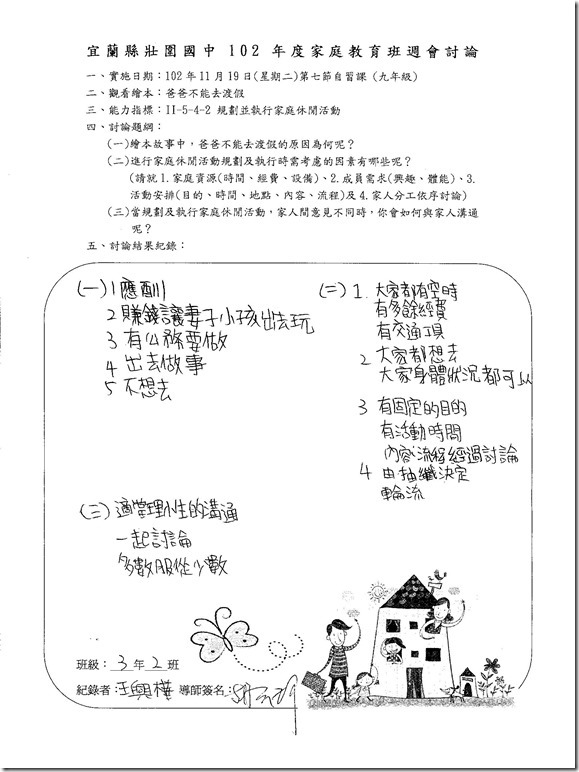 宜蘭縣壯圍國中 102 年度家庭教育班週會討論
一、實施日期：102 年 11 月 19 日(星期二)第七節自習課 (九年級)
二、觀看繪本：爸爸不能去渡假
三、能力指標：II-5-4-2 規劃並執行家庭休閒活動
四、討論題綱：
(一)繪本故事中，爸爸不能去渡假的原因為何呢？
(二)進行家庭休閒活動規劃及執行時需考慮的因素有哪些呢？
(請就 1.家庭資源(時間、經費、設備)、2.成員需求(興趣、體能)、3.
活動安排(目的、時間、地點、內容、流程)及 4.家人分工依序討論)
(三)當規劃及執行家庭休閒活動，家人間意見不同時，你會如何與家人溝通
呢？
五、討論結果紀錄：
(一) 1 應酬
2 賺錢讓妻子小孩出去玩
3 有公務要做
4 出去做事
5 不想去
(二) 1. 大家都有空時
有多餘經費
有交通工具
2 大家都想去
大家身體狀況都可以
3 有固定的目的
有活動時間
內容流程經過討論
4 由抽籤決定
輪流
(三) 適當理性的溝通
一起討論
多數服從少數
班級：3 年 2 班
紀錄者：王興樺 導師簽名：